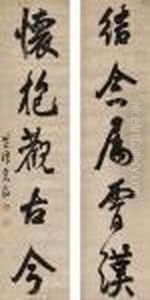 結念屬霄漢
懷抱觀古今